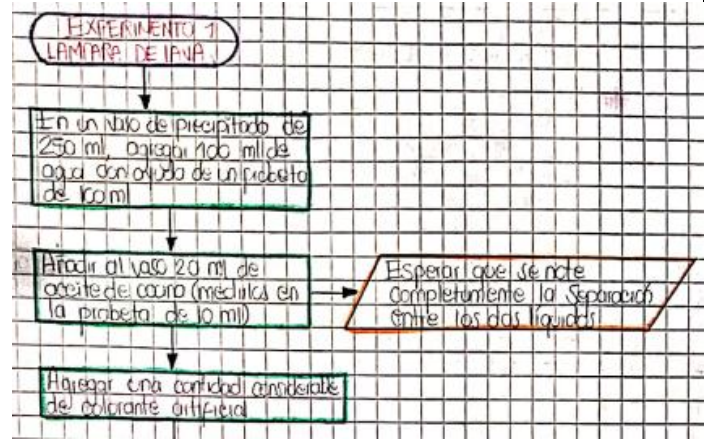 EXPERIMENTO 1
LAMPARA DE LAVA
En un vaso de precipitado de
250 ml, agregar 100 ml de
agua con ayuda de un probeta
de 100 ml
Añadir al vaso 20 ml de
aceite de cocina (medirlos en
la probeta de 10 ml)
Esperar que se note
completamente la separación
entre los dos líquidos
Agregar una cantidad considerable
de colorante artificial